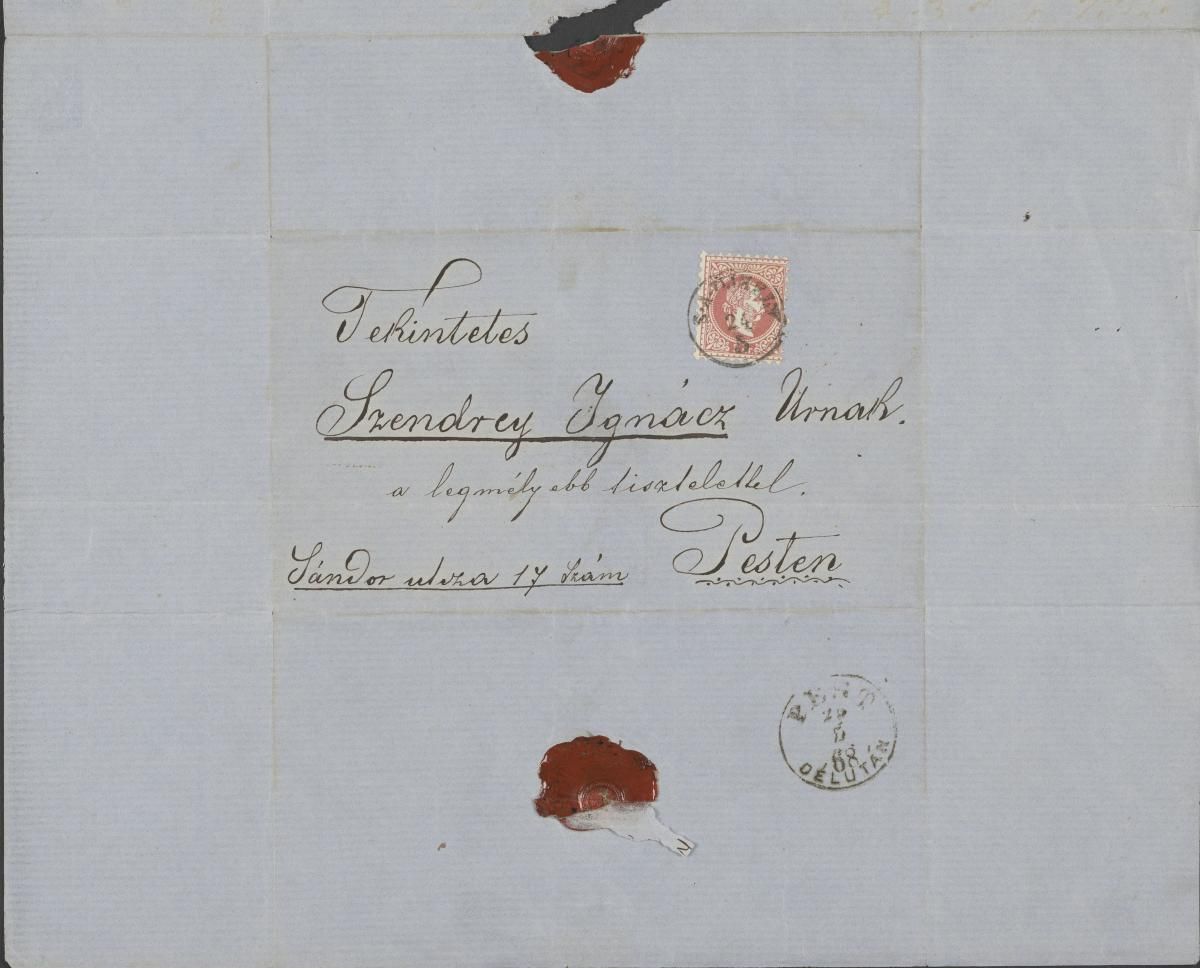 Tekintetes
Szendrey Ignácz Úrnak.
a legmélyebb tisztelettel.
Pesten
Sándor utsza 17 szám
24
5
PEST
5
68
DÉLUTÁN